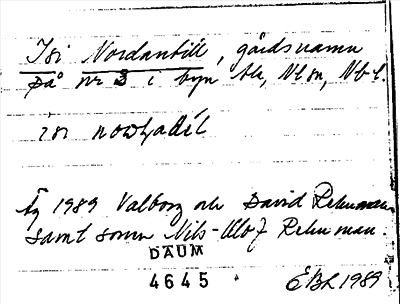 Isi Nordantill, gårdsnamn
på nr 3 i byn Ala, Nlsn, Vb l.
isi
Äg 1989 Valborg och David Rehnman
samt sonen Nils-Olof Rehnman.
DAUM
4645
EBL 1989